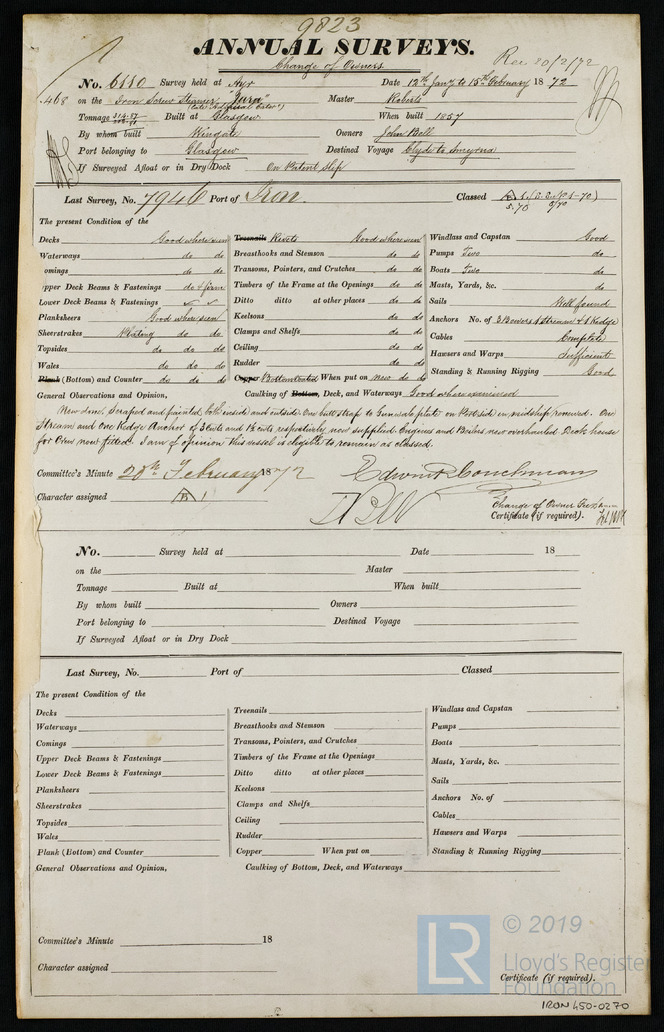 9823
ANNUAL SURVEYS.
Change of Owners
Rec 20/2/72
No. 6110 Survey held at Ayr Date 12th Jany to 15th February 1872
468 on the Iron Screw Steamer "Jura" Master Roberts
(late "Admiral Cator")
Tonnage 314.87 Built at Glasgow When built 1857
By whom built Wingate Owners John Bell
Port belonging to Glasgow Destined Voyage Clyde to Smyrna
If Surveyed Afloat or in Dry Dock On Patent Slip
Last Survey, No. 7946 Port of Iron. Classed
5.70
The present Condition of the
Decks Good where seen Treenails Rivets Good where seen Windlass and Capstan Good
Waterways do do Breasthooks and Stemson do do Pumps Two do
omings do do Transoms, Pointers, and Crutches do do Boats Two do
pper Deck Beams & Fastenings do & firm Timbers of the Frame at the Openings do do Masts, Yards, &c. do
Lower Deck Beams & Fastenings Ditto ditto at other places do do Sails Well found
Planksheers Good where seen Keelsons do do Anchors No. of 3 Bowers 1 Stream & 1 Kedge
Sheerstrakes Plating do do Clamps and Shelfs do do Cables Complete
Topsides do do do Ceiling do do Hawsers and Warps Sufficient
Wales do do do Rudder do do Standing & Running Rigging Good
Plank (Bottom) and Counter do do do Copper Bottom Coated When put on new do do
General Observations and Opinion, Caulking of Bottom, Deck, and Waterways Good where examined
Now done, Scraped and painted both inside and outside. One butt strap to Gunwale plate on Port side in midship renewed. One
Stream and one Kedge Anchor of 3 Cwts and 1½ cwts respectively new supplied. Engines and Boilers now overhauled Deck house
for Crew now fitted. I am of opinion this vessel is eligible to remain as classed.
Committee's Minute 20th February 1872 Edwin P. Couchman
Character assigned B 1
Change of Owner
Certificate (if required).
No. Survey held at Date 18
on the Master
Tonnage Built at When built
By whom built Owners
Port belonging to Destined Voyage
If Surveyed Afloat or in Dry Dock
Last Survey, No. Port of Classed
The present Condition of the
Decks Treenails Windlass and Capstan
Waterways Breasthooks and Stemson Pumps
Comings Transoms, Pointers, and Crutches Boats
Upper Deck Beams & Fastenings Timbers of the Frame at the Openings Masts, Yards, &c.
Lower Deck Beams & Fastenings Ditto ditto at other places Sails
Planksheers Keelsons Anchors No. of
Sheerstrakes Clamps and Shelfs Cables
Topsides Ceiling Hawsers and Warps
Wales Rudder Standing & Running Rigging
Plank (Bottom) and Counter Copper When put on
General Observations and Opinion, Caulking of Bottom, Deck, and Waterways
Committee's Minute 18
Character assigned
Certificate (if required).
LR © 2019
Lloyd's Register
Foundation
IRON 450-0270